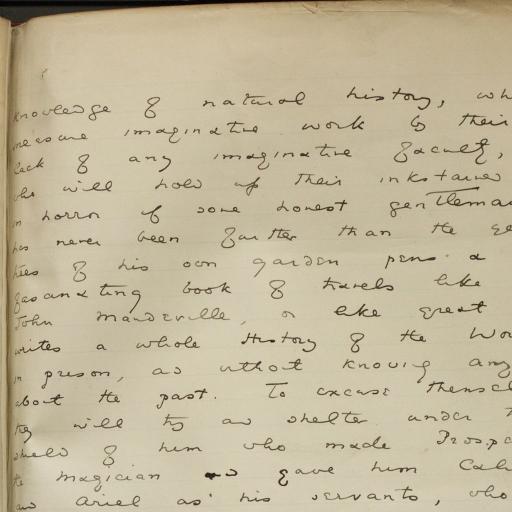 knowledge of natural history, wh
measure imaginative work by their
lack of any imaginative faculty,
who will hold up their inkstained
in horror if some honest gentleman
has never been farther than the ye
trees of his own garden pens a
fascinating book of travels like
John Mandeville, or like great
writes a whole History of the Wor
in prison, and without knowing any
about the past. To excuse themsel
they will try and shelter under t
shield of him who made Prospe
the magician and gave him Cali
and Ariel as his servants, who